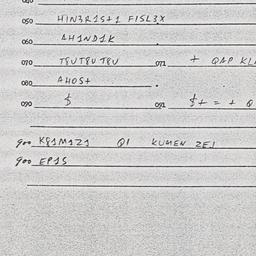 050 HIN3R1S+1 FISL3X
060 AH1ND1K
070 T8V T8V T8V 071 + QAP
080 AHOS+
090 $ 091 $+ = +
900 K81M1Z1 Q1 KUMEN ZEJ
900 EP1S